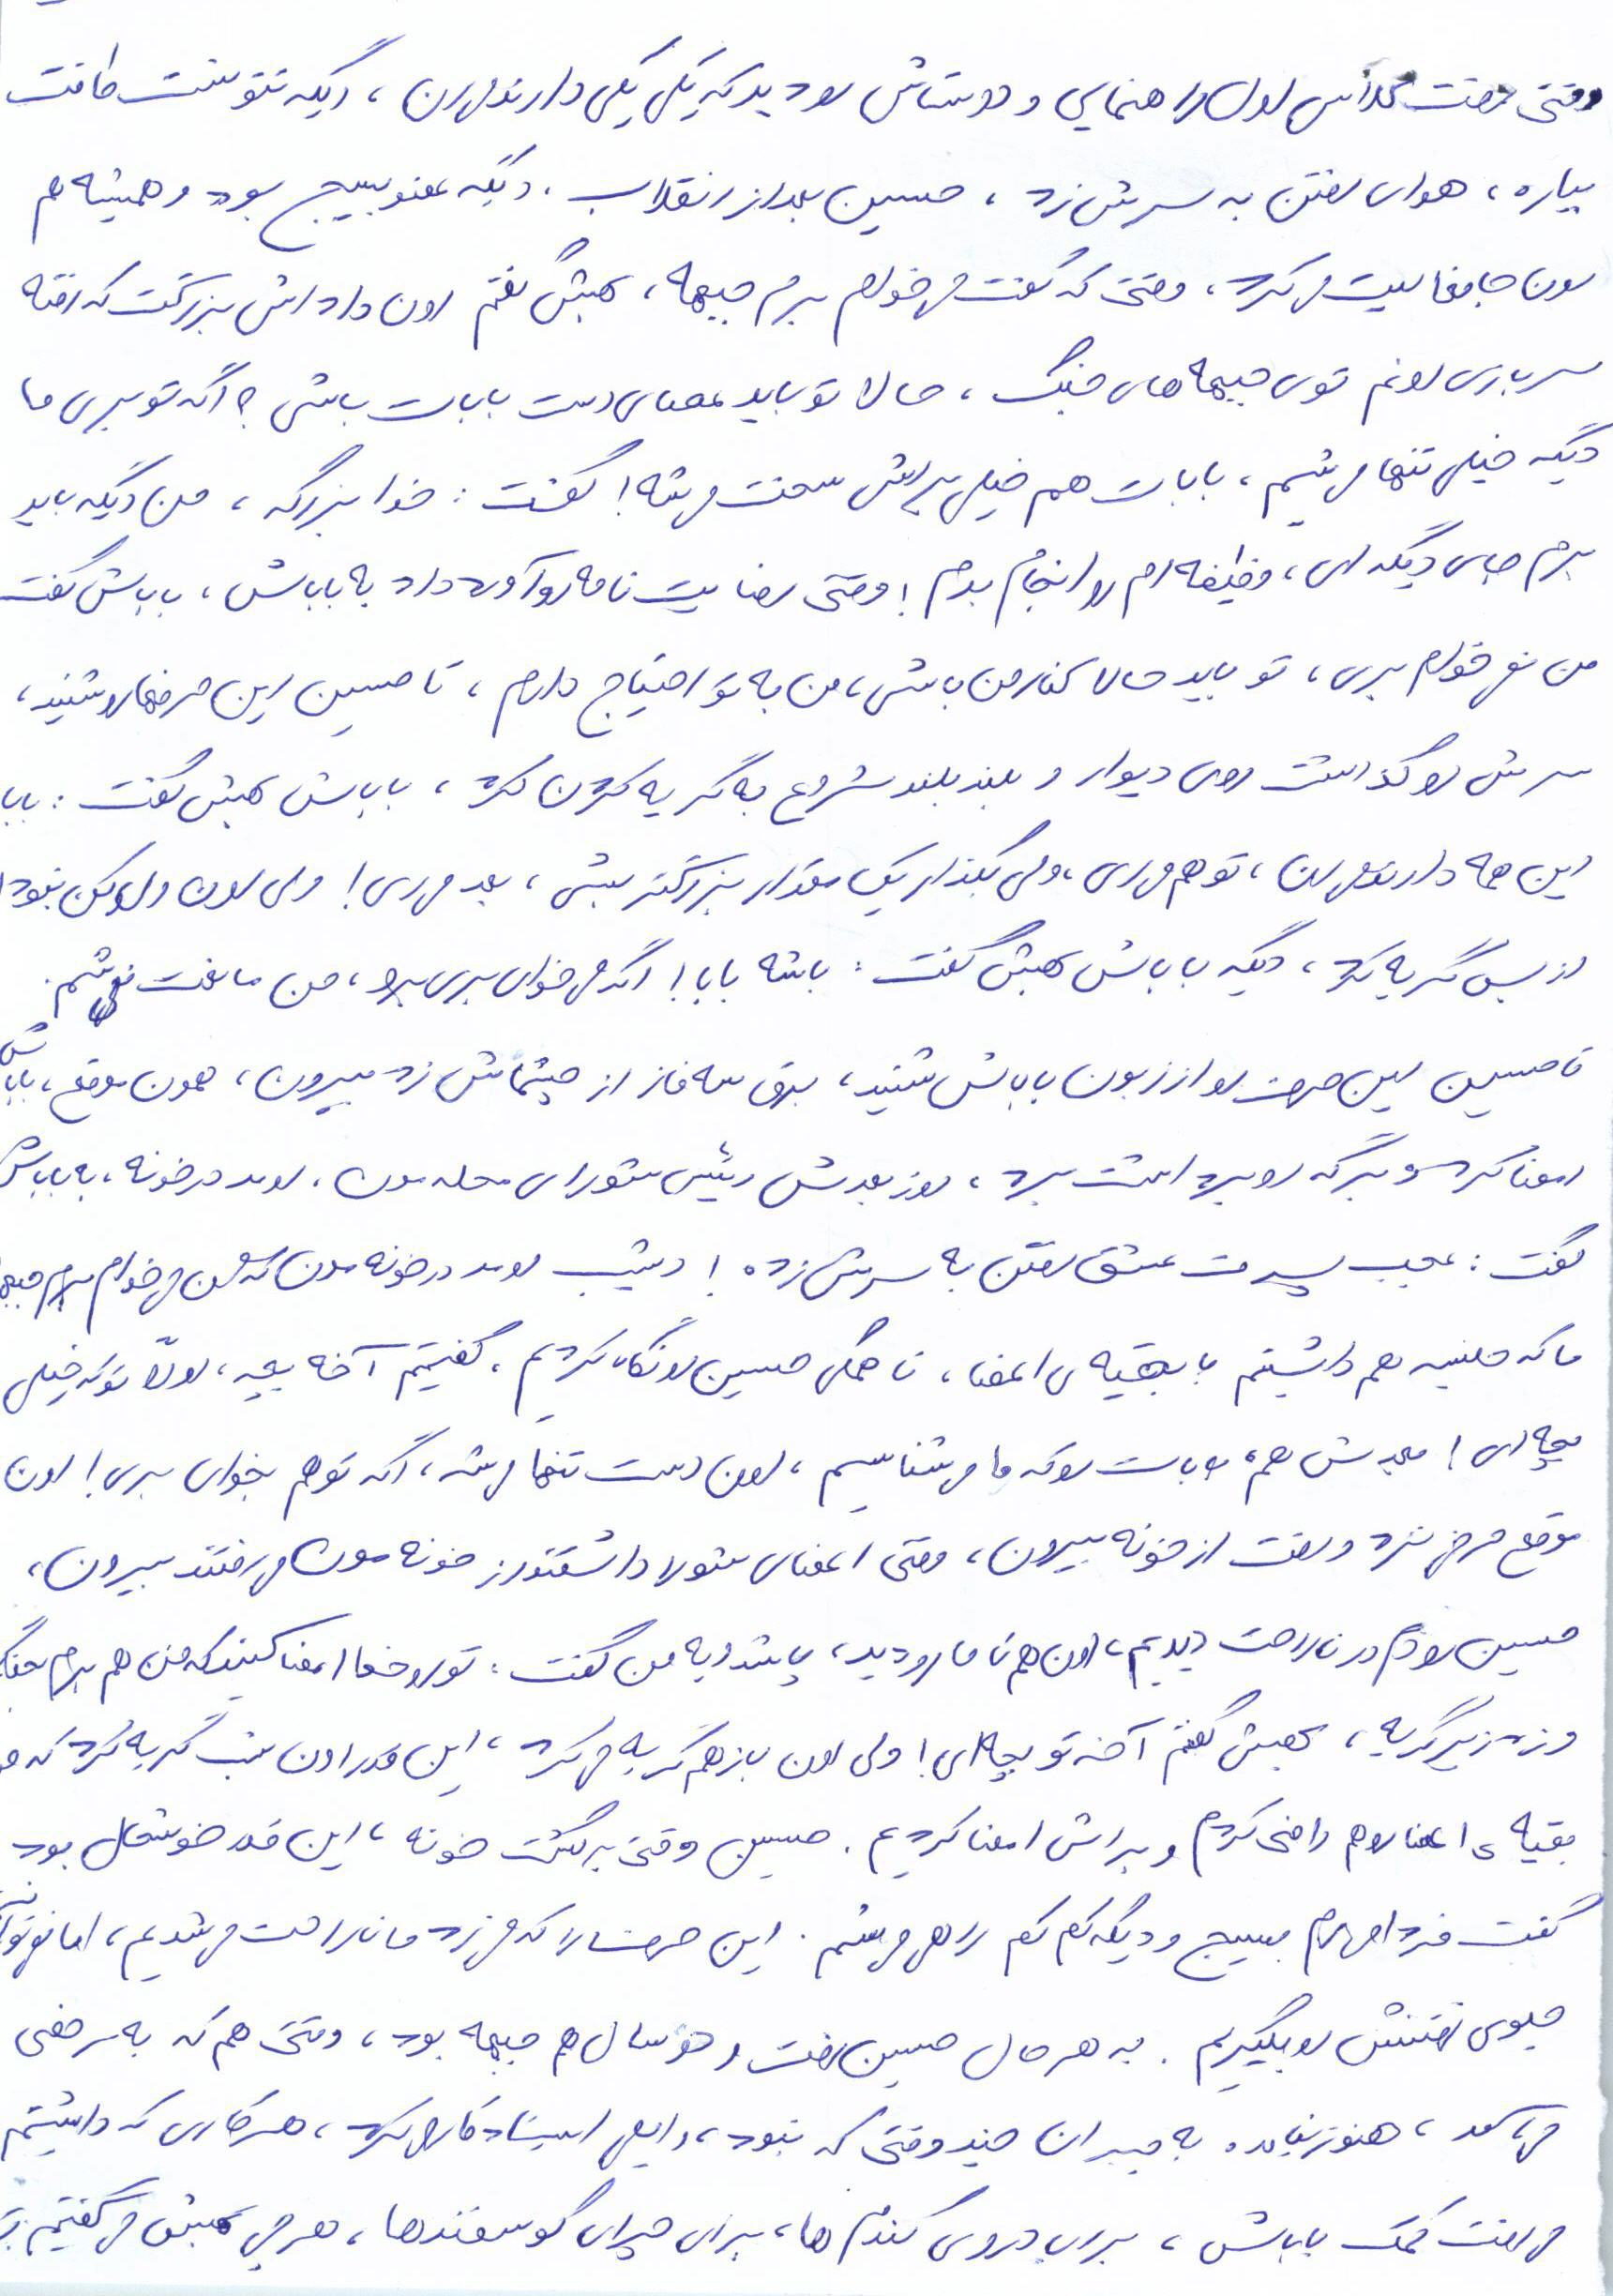 وقتی رفت کلاس اول راهنمایی و دوستاش رو دید که یکی یکی دارند می‌رن، دیگه نتونست طاقت
بیاره، هوای رفتن به سرش زد، حسین بعد از انقلاب، دیگه عضو بسیج بود و همیشه هم
اون جا فعالیت می‌کرد، وقتی که گفت می‌خوام برم جبهه، بهش گفتم اون داداش بزرگت که رفته
سربازی اونم توی جبهه‌های جنگ، حالا تو باید عصای دست بابات باشی؟ اگه تو بری ما
دیگه خیلی تنها می‌شیم، بابات هم خیلی براش سخت می‌شه! گفت: خدا بزرگه، من دیگه باید
برم جای دیگه‌ای، وظیفه‌ام رو انجام بدم! وقتی رضایت نامه رو آورد داد به باباش، باباش گفت
من نمی‌خوام بری، تو باید حالا کنار من باشی، من به تو احتیاج دارم، تا حسین این حرفها رو شنید،
سرش رو گذاشت روی دیوار و بلند بلند شروع به گریه کردن کرد، باباش بهش گفت: بابا
این همه دارند می‌رن، تو هم می‌ری، ولی بگذار یک مقدار بزرگتر بشی، بعد می‌ری! ولی اون ول کن نبود
از بس گریه کرد، دیگه باباش بهش گفت: باشه بابا! اگه می‌خوای بری برو، من مانعت نمی‌شم.
تا حسین این حرف رو از زبون باباش شنید، برق سه فاز از چشماش زد بیرون، همون موقع، باباش
امضا کرد و برگه رو برداشت برد، روز بعدش رئیس شورای محله‌مون، اومد در خونه، به باباش
گفت: عجب پسرت عشق رفتن به سرش زده! دیشب اومد در خونه‌مون که من می‌خوام برم جبهه
ما که جلسه هم داشتیم با بقیه‌ی اعضا، تا همگی حسین رو نگاه کردیم، گفتیم آخه بچه، اولاً تو که خیلی
بچه‌ای! بعدش هم، بابات رو که ما می‌شناسیم، اون دست تنها می‌شه، اگه تو هم بخوای بری! اون
موقع حرفی نزد و رفت از خونه بیرون، وقتی اعضای شورا داشتند از خونه‌مون می‌رفتند بیرون،
حسین رو دم در ناراحت دیدیم، اون هم تا ما رو دید، پاشد و به من گفت: تو رو خدا امضا کنید که من هم برم جنگ
و زد زیر گریه، بهش گفتم آخه تو بچه‌ای! ولی اون باز هم گریه می‌کرد، این قدر اون شب گریه کرد که
بقیه‌ی اعضا رو هم راضی کردم و براش امضا کردیم. حسین وقتی برگشت خونه، این قدر خوشحال بود
گفت فردا می‌رم بسیج و دیگه کم کم راهی می‌شم. این حرفها را که می‌زد ما ناراحت می‌شدیم، اما نمی‌تونستیم
جلوی رفتنش رو بگیریم. به هر حال حسین رفت و دو سال هم جبهه بود، وقتی هم که به مرخصی
می‌آمد، هنوز نیامده به جبران چند وقتی که نبود، دایم ایستاد کار می‌کرد، هر کاری که داشتیم
می‌رفت کمک باباش، برای دروی گندم‌ها، برای چرای گوسفندها، هر چی بهش می‌گفتیم